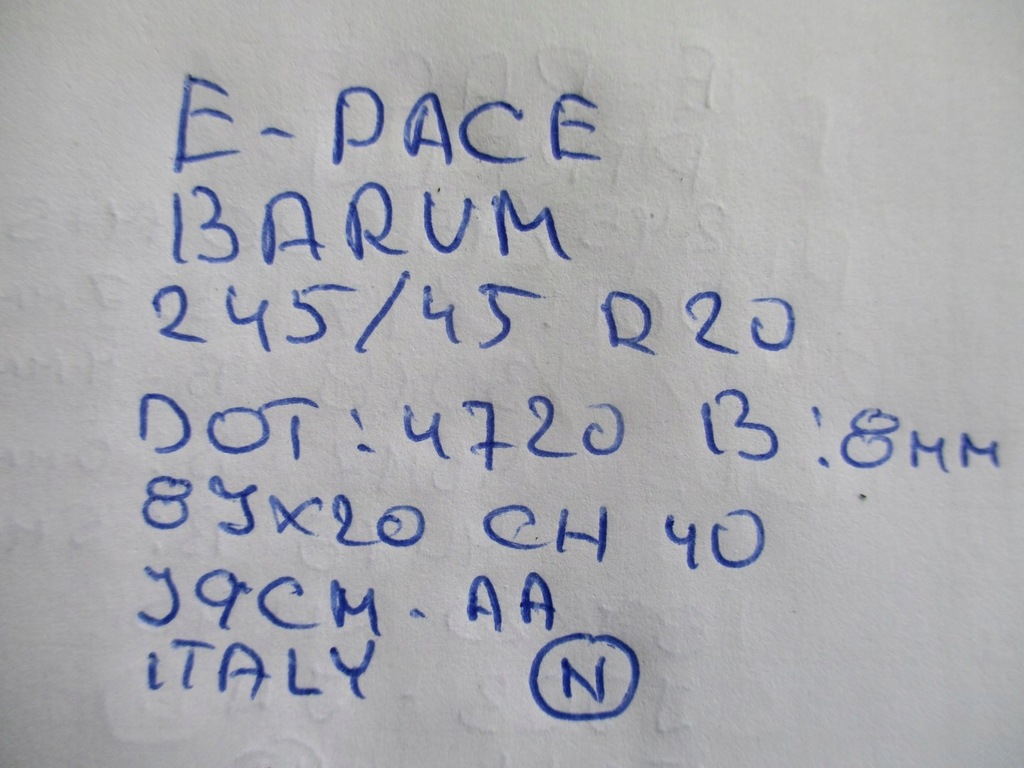 E-PACE
BARUM
245/45 R20
DOT: 4720 B:8mm
8Jx20 CH 40
J9CM-AA
ITALY N